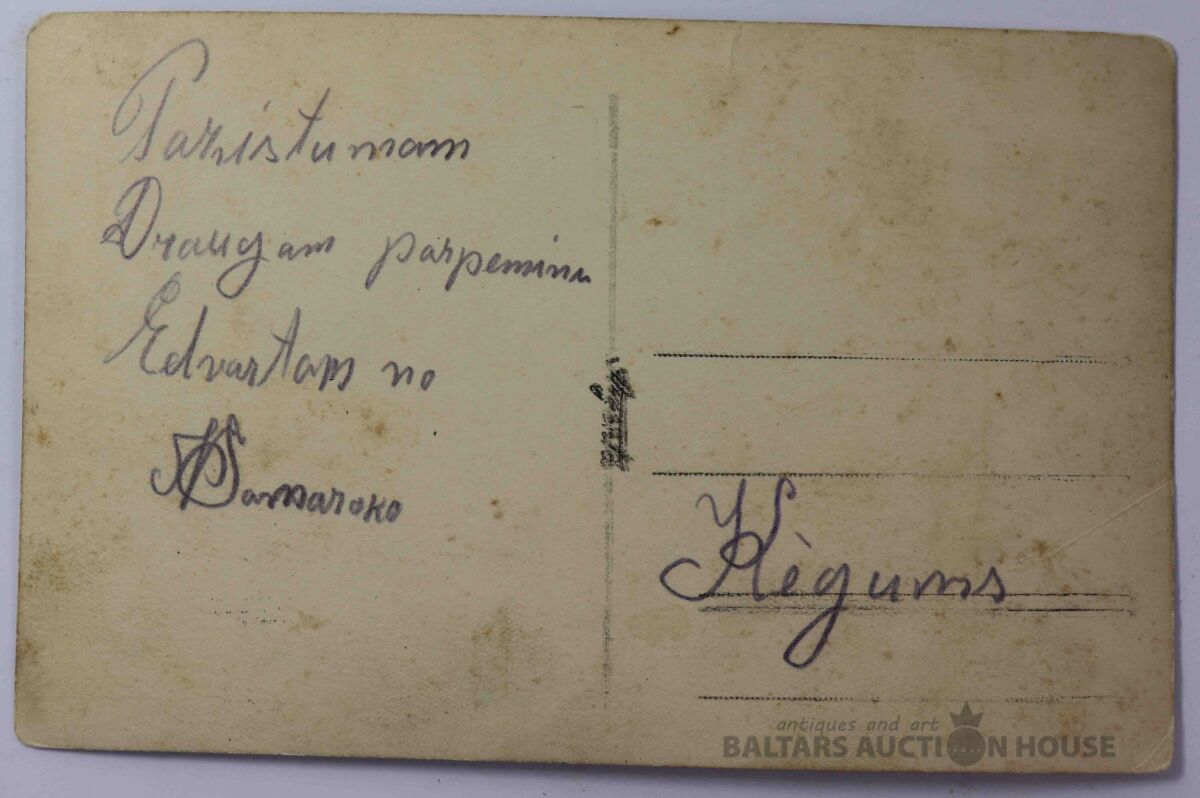 Parkistumam
Draugam parpeminu
Edvartam no
Samaroko
Kègums
antiques and art
BALTARS AUCTION HOUSE